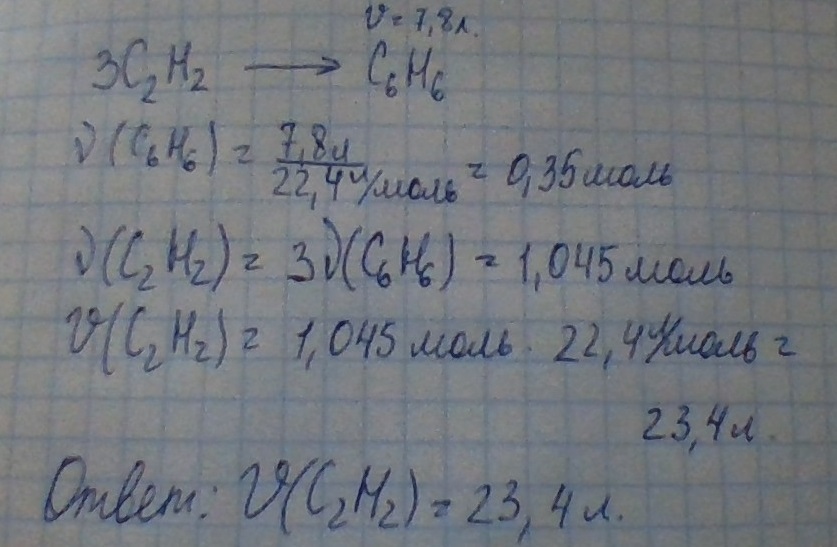 V = 7,8 л.
3C₂H₂ ⟶ C₆H₆
ν(C₆H₆) = 7,8 л / 22,4 л/моль = 0,35 моль
ν(C₂H₂) = 3ν(C₆H₆) = 1,045 моль
V(C₂H₂) = 1,045 моль · 22,4 л/моль =
23,4 л.
Ответ: V(C₂H₂) = 23,4 л.